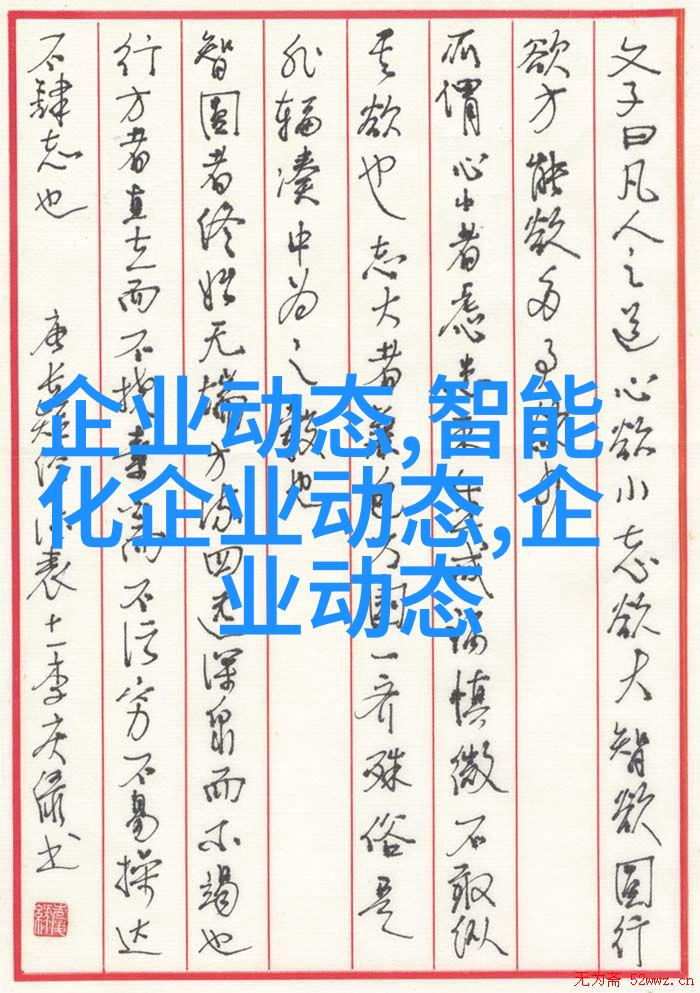 文子曰凡人之道心欲小志欲大智欲圆行
欲方能欲多事欲少
所谓心小者虑患未生戒祸慎微不敢纵
其欲也志大者兼包万国一齐殊俗是
非辐凑中为之毂也
智圆者终始无端方流四远深泉而不竭也
行方者直立而不挠素白而不污穷不易操达
不肆志也
唐长短经 表十一李庆 书
企业动态,智能
化企业动态,企
业动态
无为斋 52wwz.cn